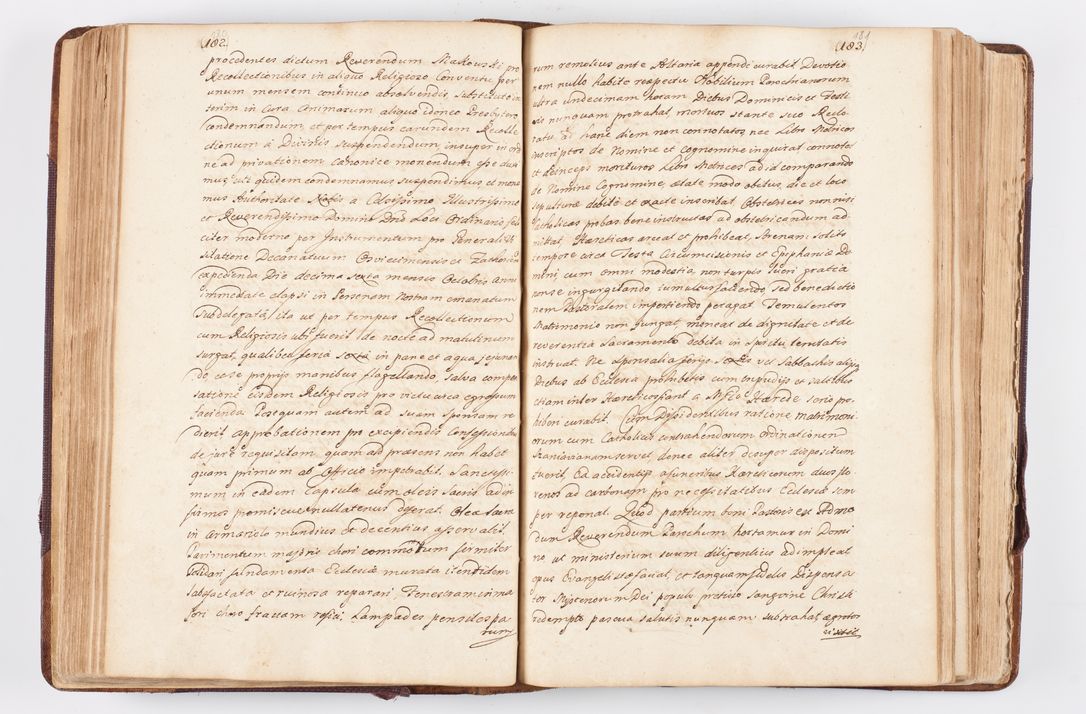 (182)
procedentes dictum Reverendum Sliakouski pro
Recollectionibus in aliquo Religioso Conventu per
unum mensem continuo absolvendis, substituto in
terim in Cura Animarum aliquo idoneo Presbytero
condemnandum, et per tempus earundem Recolle
ctionum a Divinis suspendendum, insuper in ordi
ne ad privationem canonice monendum esse duxi
mus, quidem condemnamus suspendimus et mone
mus Authoritate Nobis a Celsissimo Illustrissimo
et Reverendissimo Domino Dno Loci Ordinario feli
citer moderno per Instrumentum pro Generali Vi
sitatione Decanatuum Osviecimensis et Zathoriensis
expedienda Die decima sexta mensis Octobris anni
immediate elapsi in Personam Nostram emanatum
Subdelegata, ita ut per tempus Recollectionum
cum Religiosis ubi fuerit de nocte ad matutinum
surgat, qualibet feria sexta in pane et aqua jejunan
do esse proprijs manibus flagellando, salva compen
satione eisdem Religiosis pro victu circa egressum
facienda. Postquam autem ad suam sponsam re
dierit approbationem pro excipiendis Confessionibus
de jure requisitam, quam ad præsens non habet
quam primum ab Officio impetrabit. Sanctissi
mum in eadem Capsula cum oleis Sacris ad in
firmos promiscue nullatenus deferat. Olea Sacra
in Armariolo mundius et decentius asservabit.
Parimentum majoris chori commotum firmiter
solidari fundamenta Ecclesiæ murata itentidem
labefactata et ruinosa reparari, Fenestram in ma
jori choro fractam refici, Lampades pensiles pa
rum
(183)
181
rum remotius ante Altaria appendi curabit. Devotio
nem nullo habito respectu Nobilium Parochianorum
ultra undecimam horam Diebus Dominicis et Festi
vis nunquam protrahat, mortuos stante suo Recto
ratu ad hanc diem non connotatos nec Libro Metrices
inscriptos de Nomine et Cognomine inquirat connotet
et deinceps morituros Libro Metrices ad id comparando
de Nomine Cognomine, ætate modo obitus, die et loco
sepulturæ debite et exacte inscribat. Obstetrices non nisi
Catholicas probas bene instructas ad obstetricandum ad
mittat Hæreticas arceat et prohibeat, Strenam solito
tempore circa Festa Circumcisionis et Epiphaniæ Do
mini cum omni modestia, non turpis lucri gratia
non se ingurgitando tumultus faciendo, sed benedictio
nem Pastoralem impertiendo peragat. Temulentos
Matrimonio non jungat, moneat de dignitate et de
reverentia Sacramento debita in spiritu teritatis
instruat. Ne sponsalia ferijs sextis vel Sabbathis alijsq.
Diebus ab Ecclesia prohibitis cum tripudijs et saltibus
etiam inter Hæreticos fiant a Mfco Hærede serio pro
hiberi curabit. Cum Dissidentibus ratione Matrimoni
orum cum Catholicis contrahendorum ordinationem
Staniavianam servet, donec aliter desuper dispositum
fuerit. Ex accidentijs a funeribus Hæreticorum duos flo
renos ad carbonam pro necessitatibus Ecclesiæ sem
per reponat. Quod partium boni Pastoris est Admo
dum Reverendum Parochum hortamur in Domi
no ut ministerium suum diligentius adimpleat
opus Evangelistæ faciat, et tanquam fidelis Dispensa
tor Mysteriorum Dei populo pretioso Sanguine Christi
redempto pascua salutis nunquam subtrahat, ægrotos
visitet